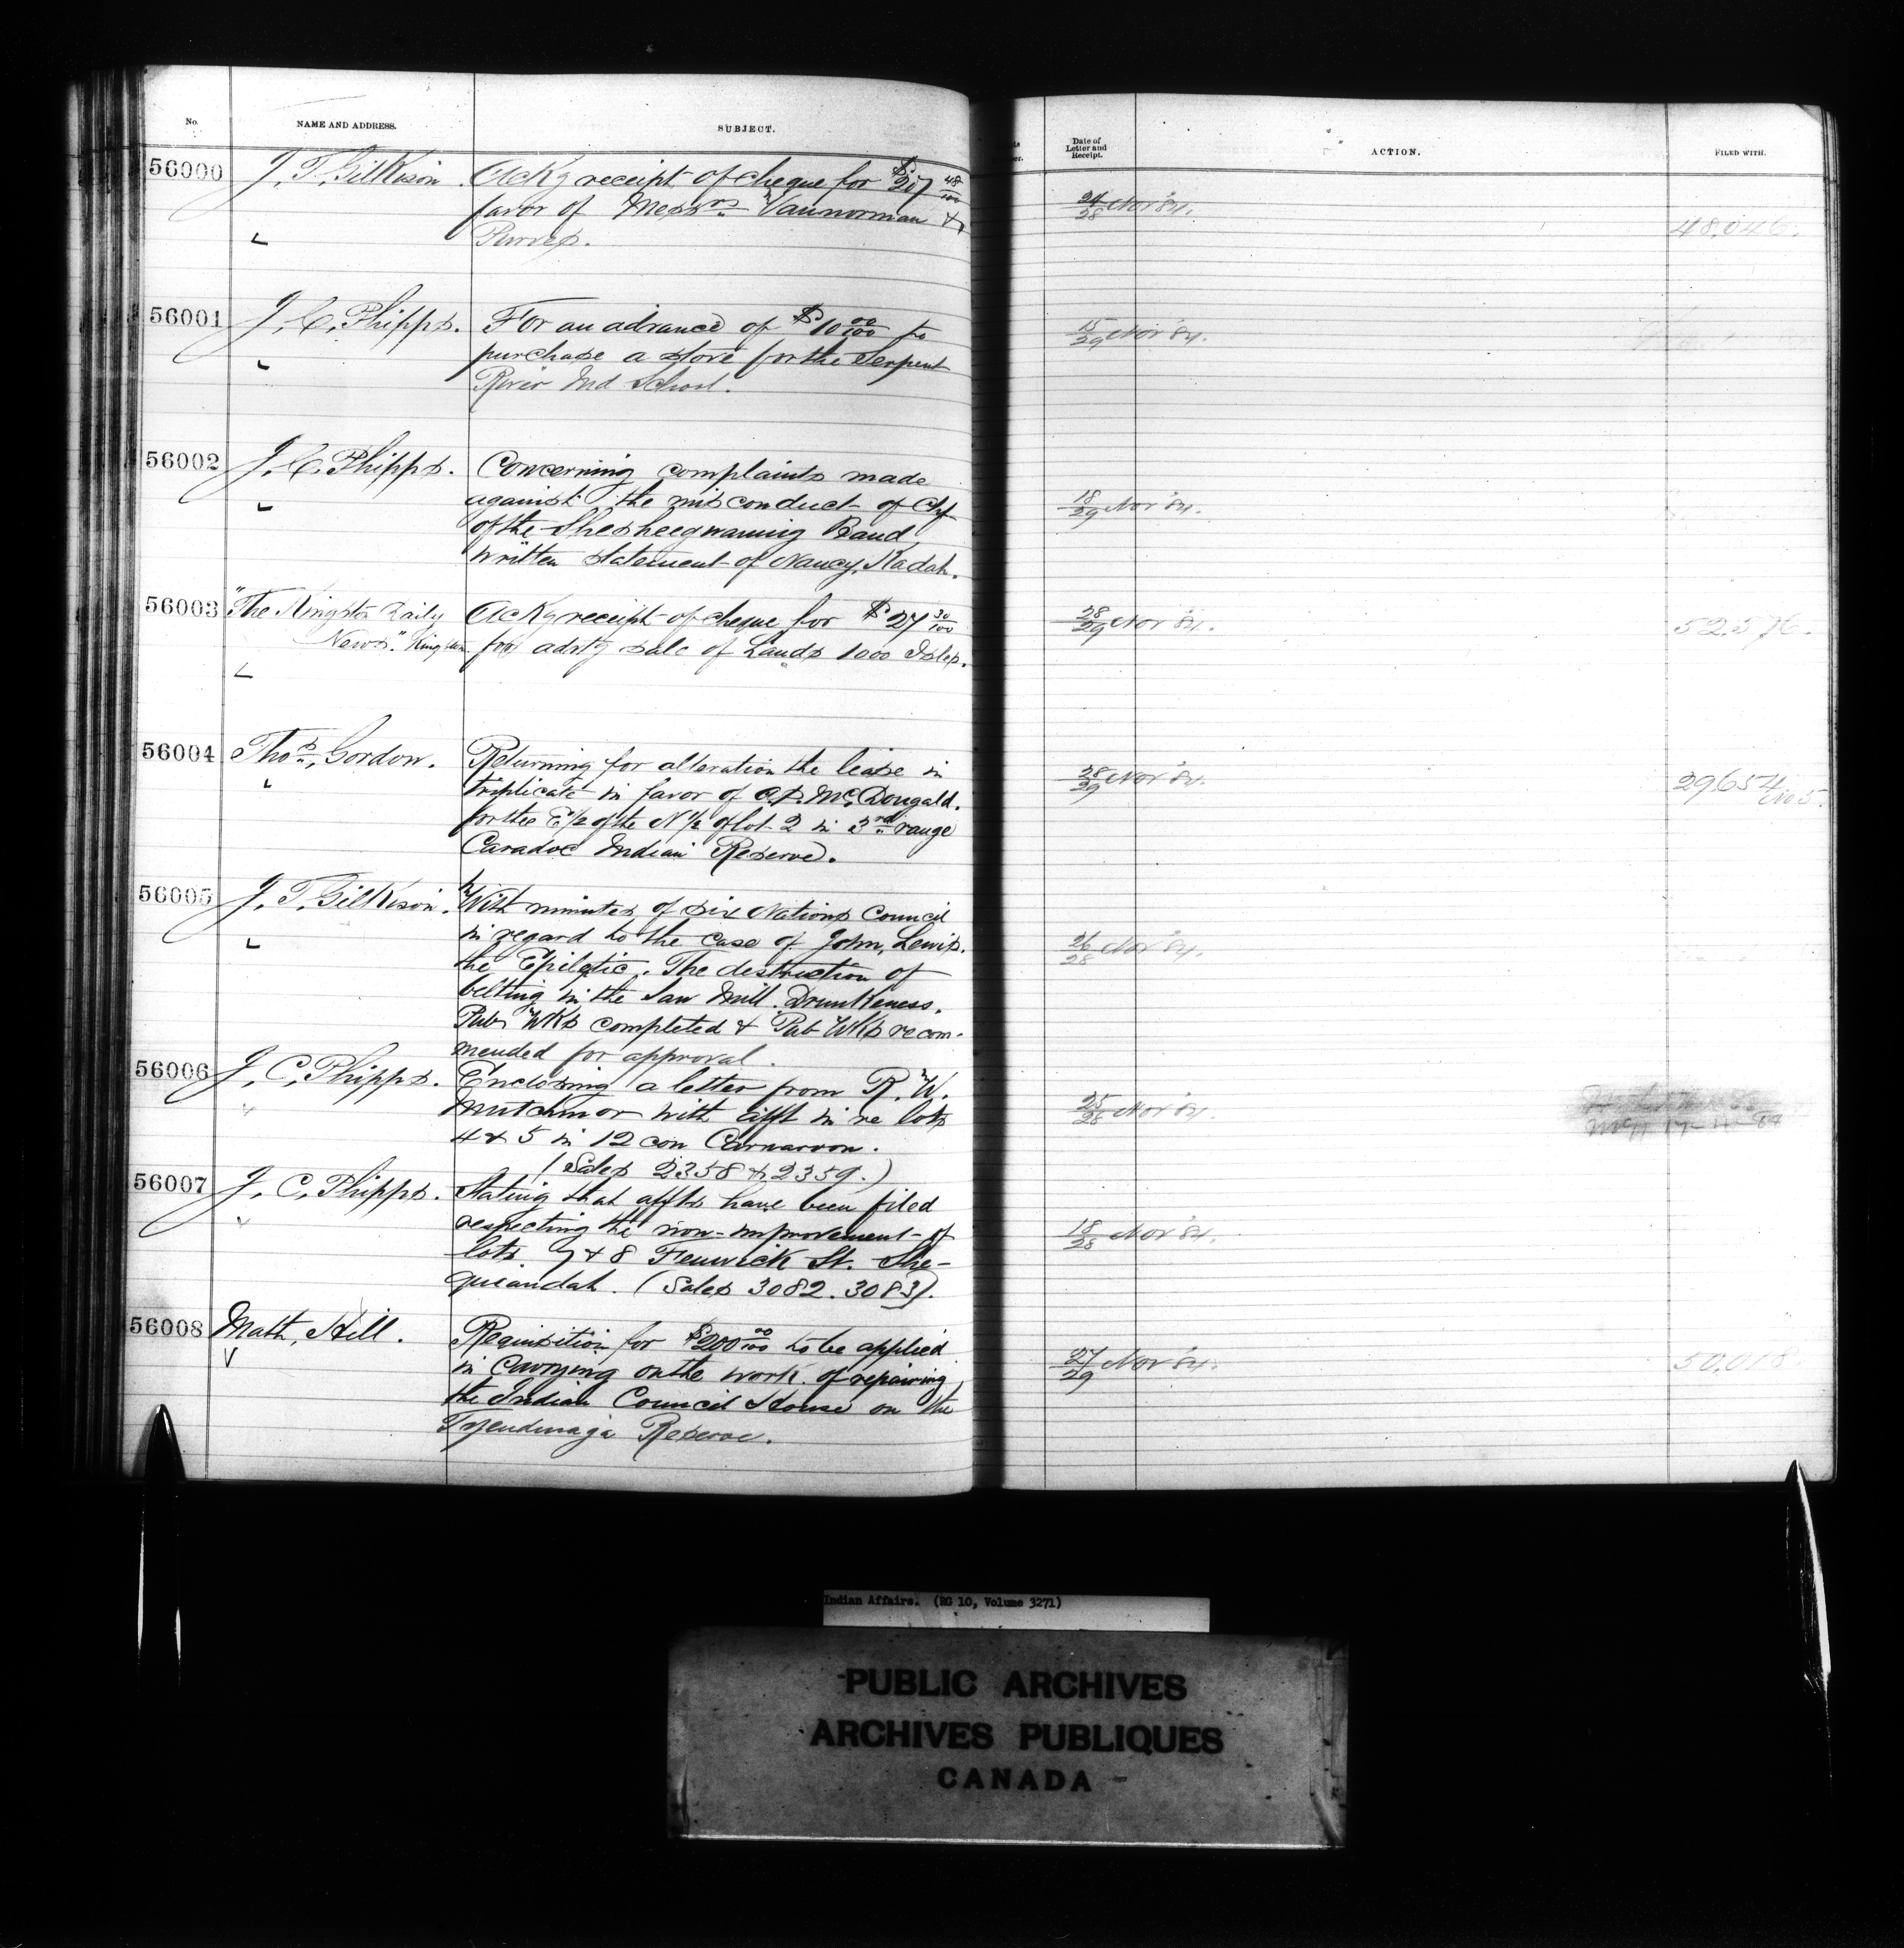 No. NAME AND ADDRESS. SUBJECT. Date of Letter and Receipt. ACTION. FILED WITH.
56000 J. T. Gilkison. Ackg receipt of cheque for $207 48/100
favor of Messrs Vannorman &
Purves.
24/28 Nov '84. 48,046.
56001 J. C. Phipps. For an advance of $10 00/100 to
purchase a stove for the Serpent
River Ind School.
15/29 Nov '84.
56002 J. C. Phipps. Concerning complaints made
against the misconduct of Chf
of the Shesheegwaning Band
written statement of Nancy Kadah.
18/29 Nov '84.
56003 "The Kingston Daily Ackg receipt of cheque for $27 30/100
News". Kingston for advtg sale of Lands 1000 Isles.
28/29 Nov '84. 52,576.
56004 Thos. Gordon. Returning for alteration the lease in
triplicate in favor of A.D. McDougald.
for the E½ of the N½ of lot 2 in 3rd range
Caradoc Indian Reserve.
28/29 Nov '84. 29,654
No 5.
56005 J. T. Gilkison. With minutes of Six Nations Council
in regard to the case of John Lewis.
the Epiletic. The destruction of
belting in the Saw Mill. Drunkeness.
Pub Wks completed & Pub Wks recom-
mended for approval.
26/28 Nov '84.
56006 J. C. Phipps. Enclosing a letter from R. W.
Mutchmor with afft in re lots
4 & 5 in 12 con Carnarvon.
(Sales 2358 & 2359.)
25/28 Nov '84.
56007 J. C. Phipps. Stating that affts have been filed
respecting the non-improvement of
lots 7 & 8 Fenwick St. She-
quiandah. (Sales 3082. 3083).
18/28 Nov '84.
56008 Math. Hill. Requisition for $200 00/100 to be applied
in carrying on the work of repairing
the Indian Council House on the
Tyendinaga Reserve.
27/29 Nov '84. 50,018
Indian Affairs. (RG 10, Volume 3271)
PUBLIC ARCHIVES
ARCHIVES PUBLIQUES
CANADA